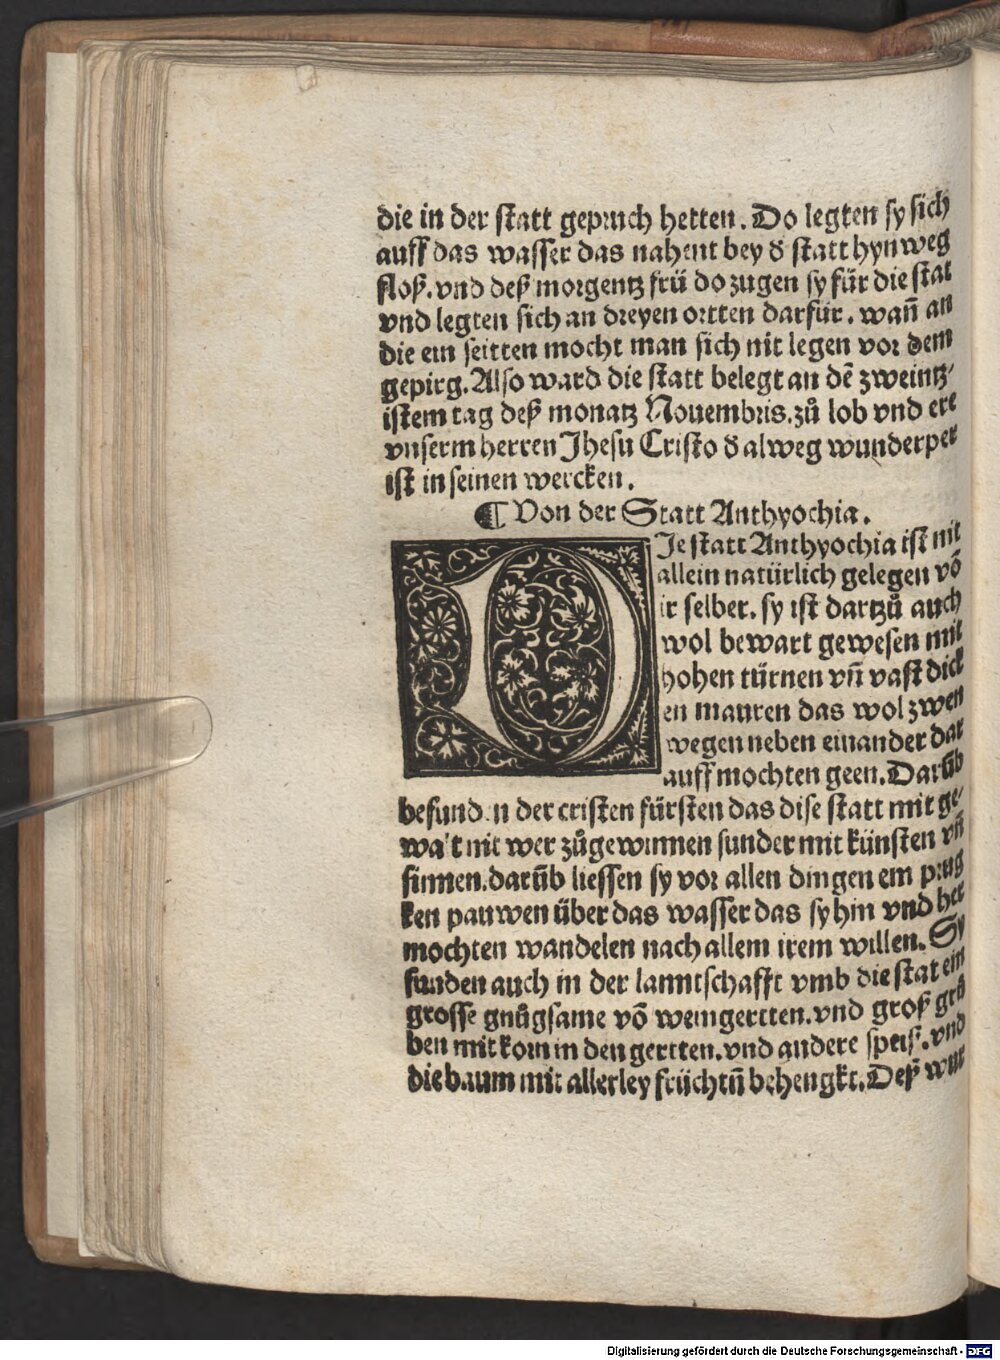 die in der statt gepruch hetten. Do legten sy sich
auff das wasser das nahent bey d statt hyn weg
floß. vnd deß morgentz frü do zugen sy für die stat
vnd legten sich an dreyen ortten darfür. wañ an
die ein seitten mocht man sich nit legen vor dem
gepirg. Also ward die statt belegt an dē zweintz⸗
istem tag deß monatz Nouembris. zů lob vnd ere
vnserm herren Jhesu Cristo d alweg wunderper
ist in seinen wercken.
¶ Von der Statt Anthyochia.
DJe statt Anthyochia ist nit
allein natürlich gelegen vō
ir selber. sy ist dartzů auch
wol bewart gewesen mit
hohen türnen vñ vast dick
en mauren das wol zwen
wegen neben einander dar
auff mochten geen. Darūb
befunden der cristen fürsten das dise statt mit ge⸗
walt nit wer zůgewinnen sunder mit künsten vñ
sinnen. darūb liessen sy vor allen dingen ein prug
ken pauwen über das wasser das sy hin vnd her
mochten wandelen nach allem irem willen. Sy
funden auch in der lanntschafft vmb die stat ein
grosse gnůgsame vō weingertten. vnd groß grů
ben mit korn in den gertten. vnd andere speiß. vnd
die baum mit allerley früchtū behengkt. Deß wur
Digitalisierung gefördert durch die Deutsche Forschungsgemeinschaft - DFG